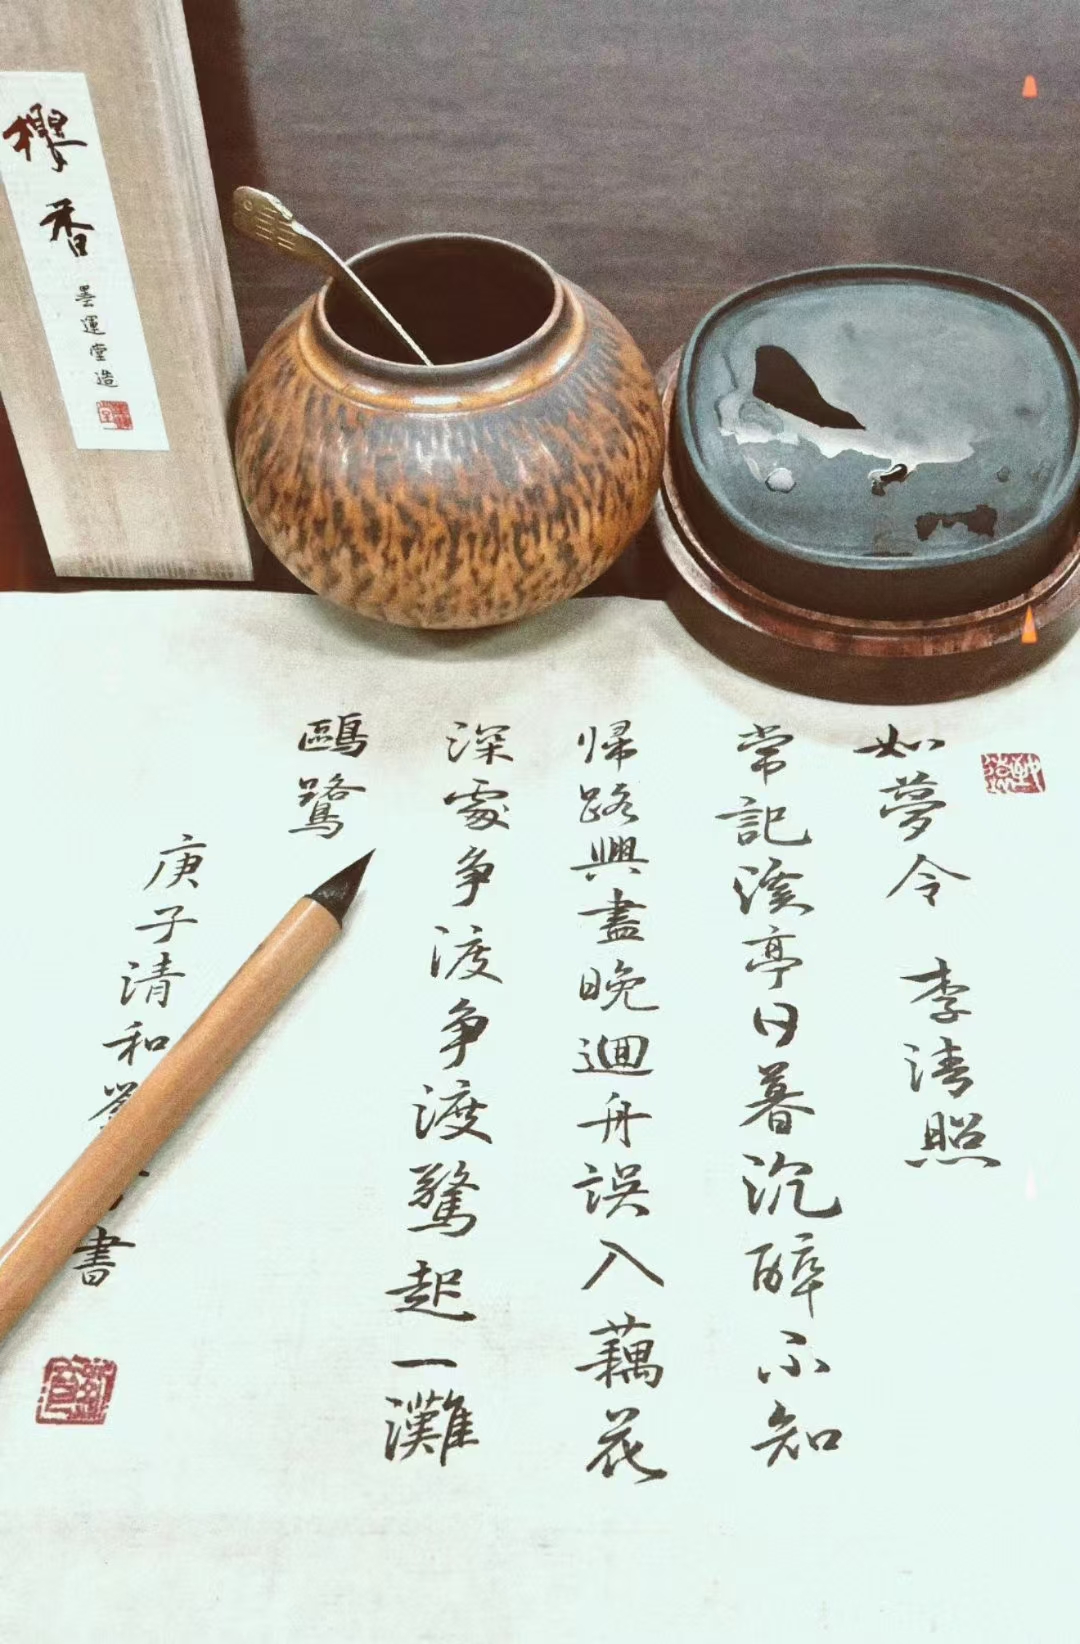 如夢令 李清照
常記溪亭日暮沉醉不知
帰路興盡晚迴舟誤入藕花
深處争渡争渡驚起一灘
鷗鷺
庚子清和劉書
香
墨運堂造